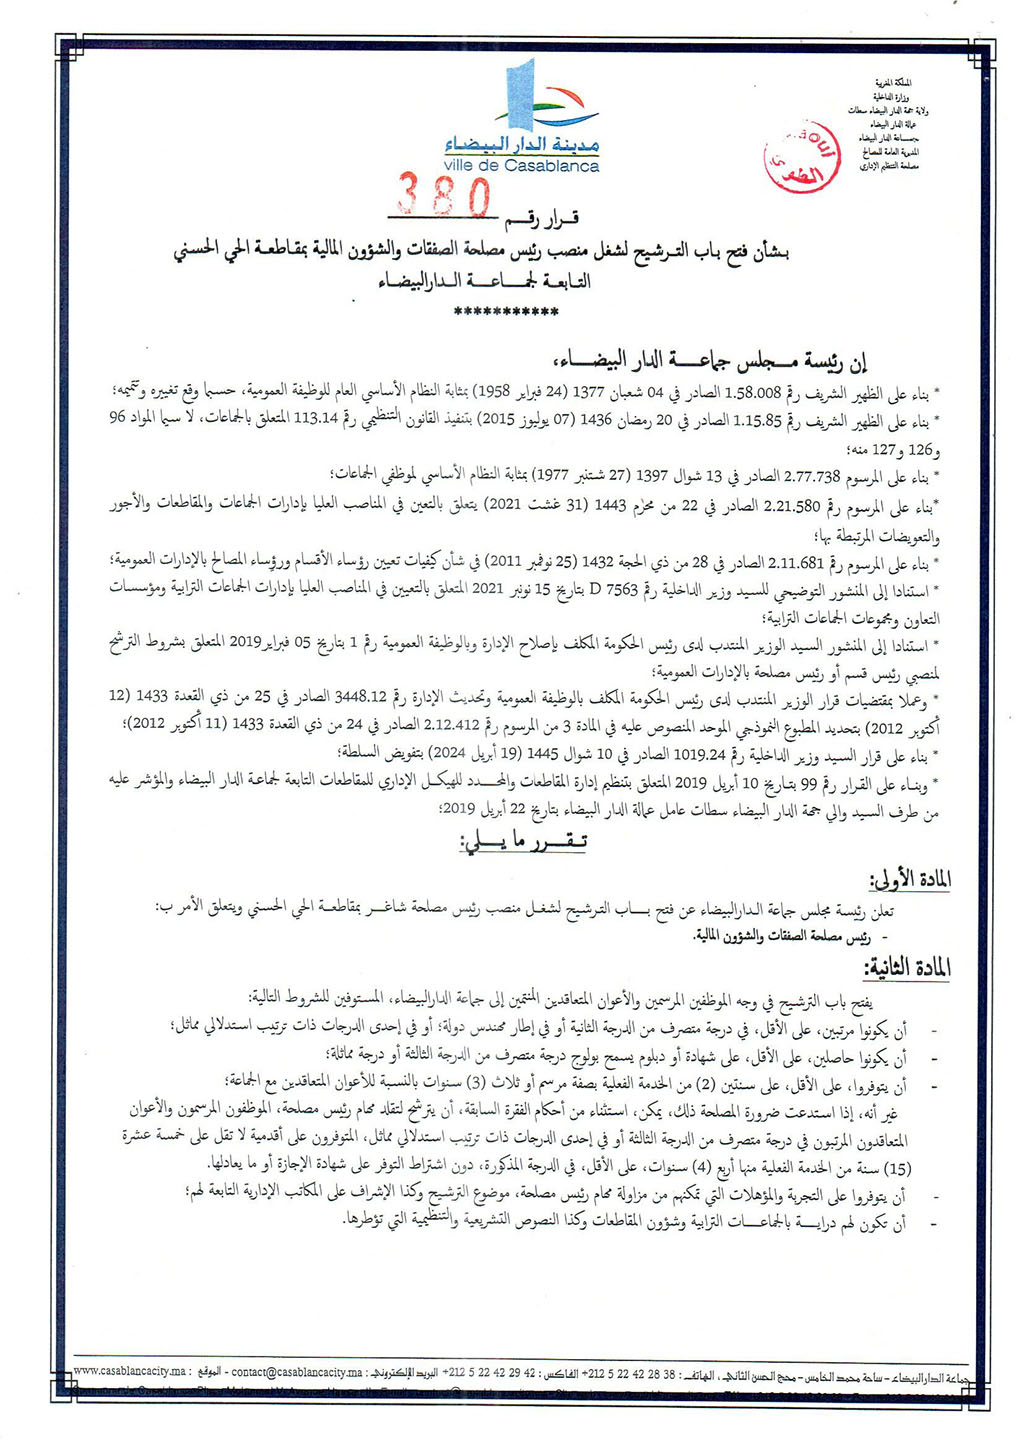 المملكة المغربية
وزارة الداخلية
ولاية جهة الدار البيضاء سطات
عمالة الدار البيضاء
جماعة الدار البيضاء
المديرية العامة للمصالح
مصلحة التنظيم الإداري
مدينة الدار البيضاء
ville de Casablanca
قرار رقم 380
بشأن فتح باب الترشيح لشغل منصب رئيس مصلحة الصفقات والشؤون المالية بمقاطعة الحي الحسني
التابعة لجماعة الدارالبيضاء
***********
إن رئيسة مجلس جماعة الدار البيضاء،
* بناء على الظهير الشريف رقم 1.58.008 الصادر في 04 شعبان 1377 (24 فبراير 1958) بمثابة النظام الأساسي العام للوظيفة العمومية، حسبما وقع تغييره وتتميمه؛
* بناء على الظهير الشريف رقم 1.15.85 الصادر في 20 رمضان 1436 (07 يوليوز 2015) بتنفيذ القانون التنظيمي رقم 113.14 المتعلق بالجماعات، لا سيما المواد 96
و126 و127 منه؛
* بناء على المرسوم 2.77.738 الصادر في 13 شوال 1397 (27 شتنبر 1977) بمثابة النظام الأساسي لموظفي الجماعات؛
*بناء على المرسوم رقم 2.21.580 الصادر في 22 من محرم 1443 (31 غشت 2021) يتعلق بالتعين في المناصب العليا بإدارات الجماعات والمقاطعات والأجور
والتعويضات المرتبطة بها؛
* بناء على المرسوم رقم 2.11.681 الصادر في 28 من ذي الحجة 1432 (25 نوفمبر 2011) في شأن كيفيات تعيين رؤساء الأقسام ورؤساء المصالح بالإدارات العمومية؛
* استنادا إلى المنشور التوضيحي للسيد وزير الداخلية رقم D 7563 بتاريخ 15 نونبر 2021 المتعلق بالتعيين في المناصب العليا بإدارات الجماعات الترابية ومؤسسات
التعاون ومجموعات الجماعات الترابية؛
* استنادا إلى المنشور السيد الوزير المنتدب لدى رئيس الحكومة المكلف بإصلاح الإدارة وبالوظيفة العمومية رقم 1 بتاريخ 05 فبراير2019 المتعلق بشروط الترشح
لمنصبي رئيس قسم أو رئيس مصلحة بالإدارات العمومية؛
* وعملا بمقتضيات قرار الوزير المنتدب لدى رئيس الحكومة المكلف بالوظيفة العمومية وتحديث الإدارة رقم 3448.12 الصادر في 25 من ذي القعدة 1433 (12
أكتوبر 2012) بتحديد المطبوع النموذجي الموحد المنصوص عليه في المادة 3 من المرسوم رقم 2.12.412 الصادر في 24 من ذي القعدة 1433 (11 أكتوبر 2012)؛
* بناء على قرار السيد وزير الداخلية رقم 1019.24 الصادر في 10 شوال 1445 (19 أبريل 2024) بتفويض السلطة؛
* وبناء على القرار رقم 99 بتاريخ 10 أبريل 2019 المتعلق بتنظيم إدارة المقاطعات والمحدد للهيكل الإداري للمقاطعات التابعة لجماعة الدار البيضاء والمؤشر عليه
من طرف السيد والي جهة الدار البيضاء سطات عامل عمالة الدار البيضاء بتاريخ 22 أبريل 2019؛
تقرر ما يلي:
المادة الأولى:
تعلن رئيسة مجلس جماعة الدارالبيضاء عن فتح باب الترشيح لشغل منصب رئيس مصلحة شاغر بمقاطعة الحي الحسني ويتعلق الأمر ب:
- رئيس مصلحة الصفقات والشؤون المالية.
المادة الثانية:
يفتح باب الترشيح في وجه الموظفين المرسمين والأعوان المتعاقدين المنتمين إلى جماعة الدارالبيضاء، المستوفين للشروط التالية:
- أن يكونوا مرتبين، على الأقل، في درجة متصرف من الدرجة الثانية أو في إطار مهندس دولة؛ أو في إحدى الدرجات ذات ترتيب استدلالي مماثل؛
- أن يكونوا حاصلين، على الأقل، على شهادة أو دبلوم يسمح بولوج درجة متصرف من الدرجة الثالثة أو درجة مماثلة؛
- أن يتوفروا، على الأقل، على سنتين (2) من الخدمة الفعلية بصفة مرسم أو ثلاث (3) سنوات بالنسبة للأعوان المتعاقدين مع الجماعة؛
غير أنه، إذا استدعت ضرورة المصلحة ذلك، يمكن، استثناء من أحكام الفقرة السابقة، أن يترشح لتقلد مهام رئيس مصلحة، الموظفون المرسمون والأعوان
المتعاقدون المرتبون في درجة متصرف من الدرجة الثالثة أو في إحدى الدرجات ذات ترتيب استدلالي مماثل، المتوفرون على أقدمية لا تقل على خمسة عشرة
(15) سنة من الخدمة الفعلية منها أربع (4) سنوات، على الأقل، في الدرجة المذكورة، دون اشتراط التوفر على شهادة الإجازة أو ما يعادلها.
- أن يتوفروا على التجربة والمؤهلات التي تمكنهم من مزاولة مهام رئيس مصلحة، موضوع الترشيح وكذا الإشراف على المكاتب الإدارية التابعة لهم؛
- أن تكون لهم دراية بالجماعات الترابية وشؤون المقاطعات وكذا النصوص التشريعية والتنظيمية التي تؤطرها.
جماعة الدارالبيضاء - ساحة محمد الخامس - محج الحسن الثاني، الهاتف : 38 28 42 22 5 212+ الفاكس : 42 29 42 22 5 212+ البريد الإلكتروني : contact@casablancacity.ma - الموقع : www.casablancacity.ma